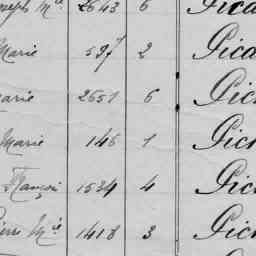 2643 6 Pica
Marie 527 2 Pica
Marie 2651 6 Pic
Marie 146 1 Pic
François 1534 4 Pic
Pierre Mie 1418 3 Pic